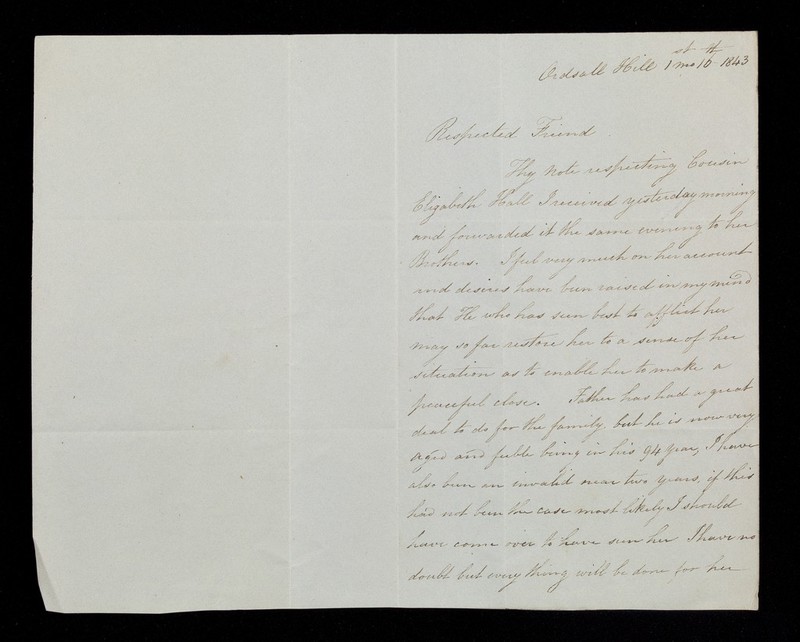 Ordsall Hill 1st mo 16th 1843
Respected Friend.
Thy Note respecting Cousin
Elizabeth Hall I received yesterday morning
and forwarded it the same evening to her
Brothers. I feel very much on her account
and desires have been raised in my mind
that He who has seen best to afflict her
may so far restore her to a sense of her
situation as to enable her to make a
peaceful close. Father has had a great
deal to do for the family, but he is now very
aged and feeble being in his 94 year, I have
also been an invalid near two years, if this
had not been the case most likely I should
have come over to have seen her I have no
doubt but every thing will be done for her